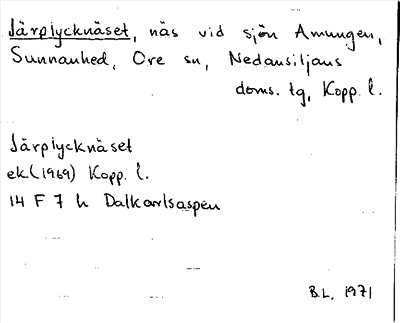 Järplycknäset, näs vid sjön Amungen,
Sunnanhed, Ore sn, Nedansiljans
doms. tg, Kopp. l.
Järplycknäset
ek (1969) Kopp. l.
14 F 7 h Dalkarlsaspen
B.L. 1971